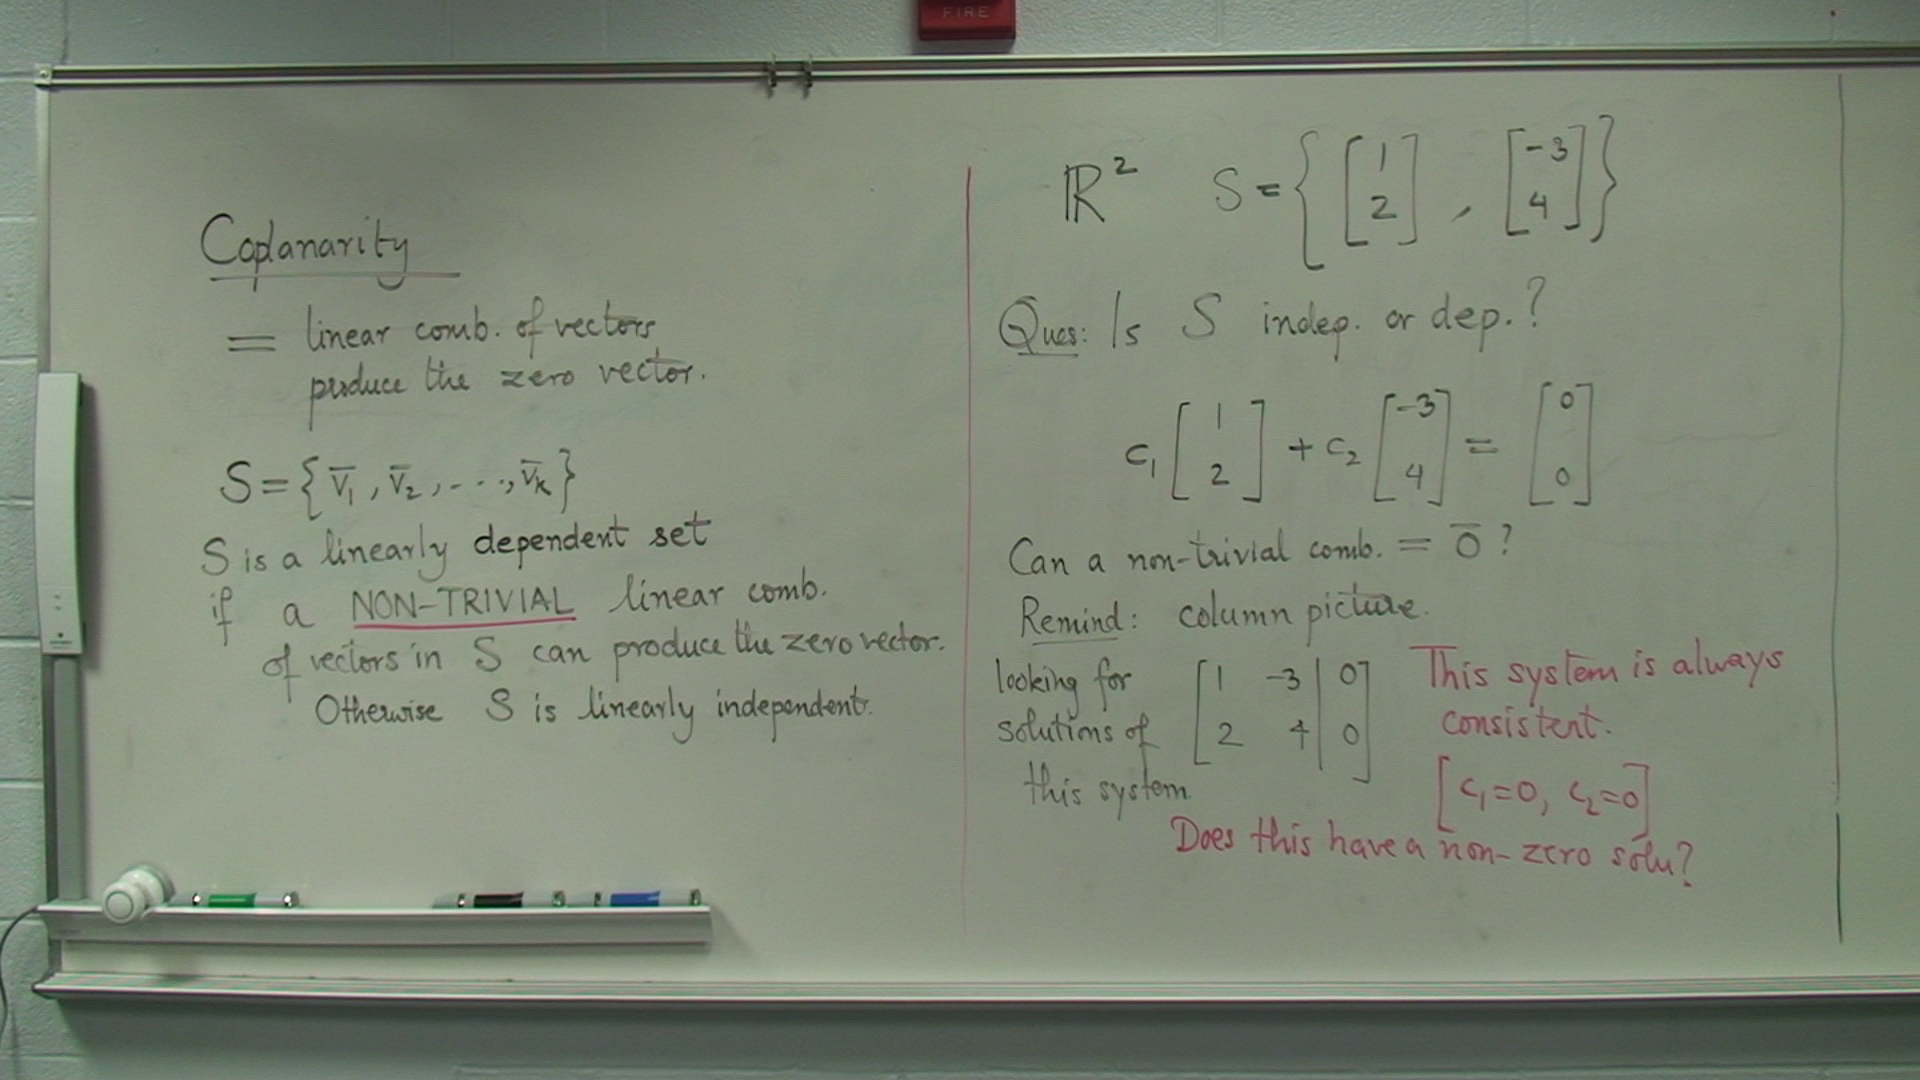 FIRE
Coplanarity
= linear comb. of vectors
produce the zero vector.
S = { v̅₁, v̅₂, - - -, v̅ₖ }
S is a linearly dependent set
if a NON-TRIVIAL linear comb.
of vectors in S can produce the zero vector.
Otherwise S is linearly independent.
ℝ² S = { [1 2], [-3 4] }
Ques: Is S indep. or dep.?
c₁ [1 2] + c₂ [-3 4] = [0 0]
Can a non-trivial comb. = 0̅ ?
Remind: column picture.
looking for
solutions of
this system
[1 -3 | 0
2 4 | 0]
This system is always
consistent.
[c₁=0, c₂=0]
Does this have a non-zero solu?